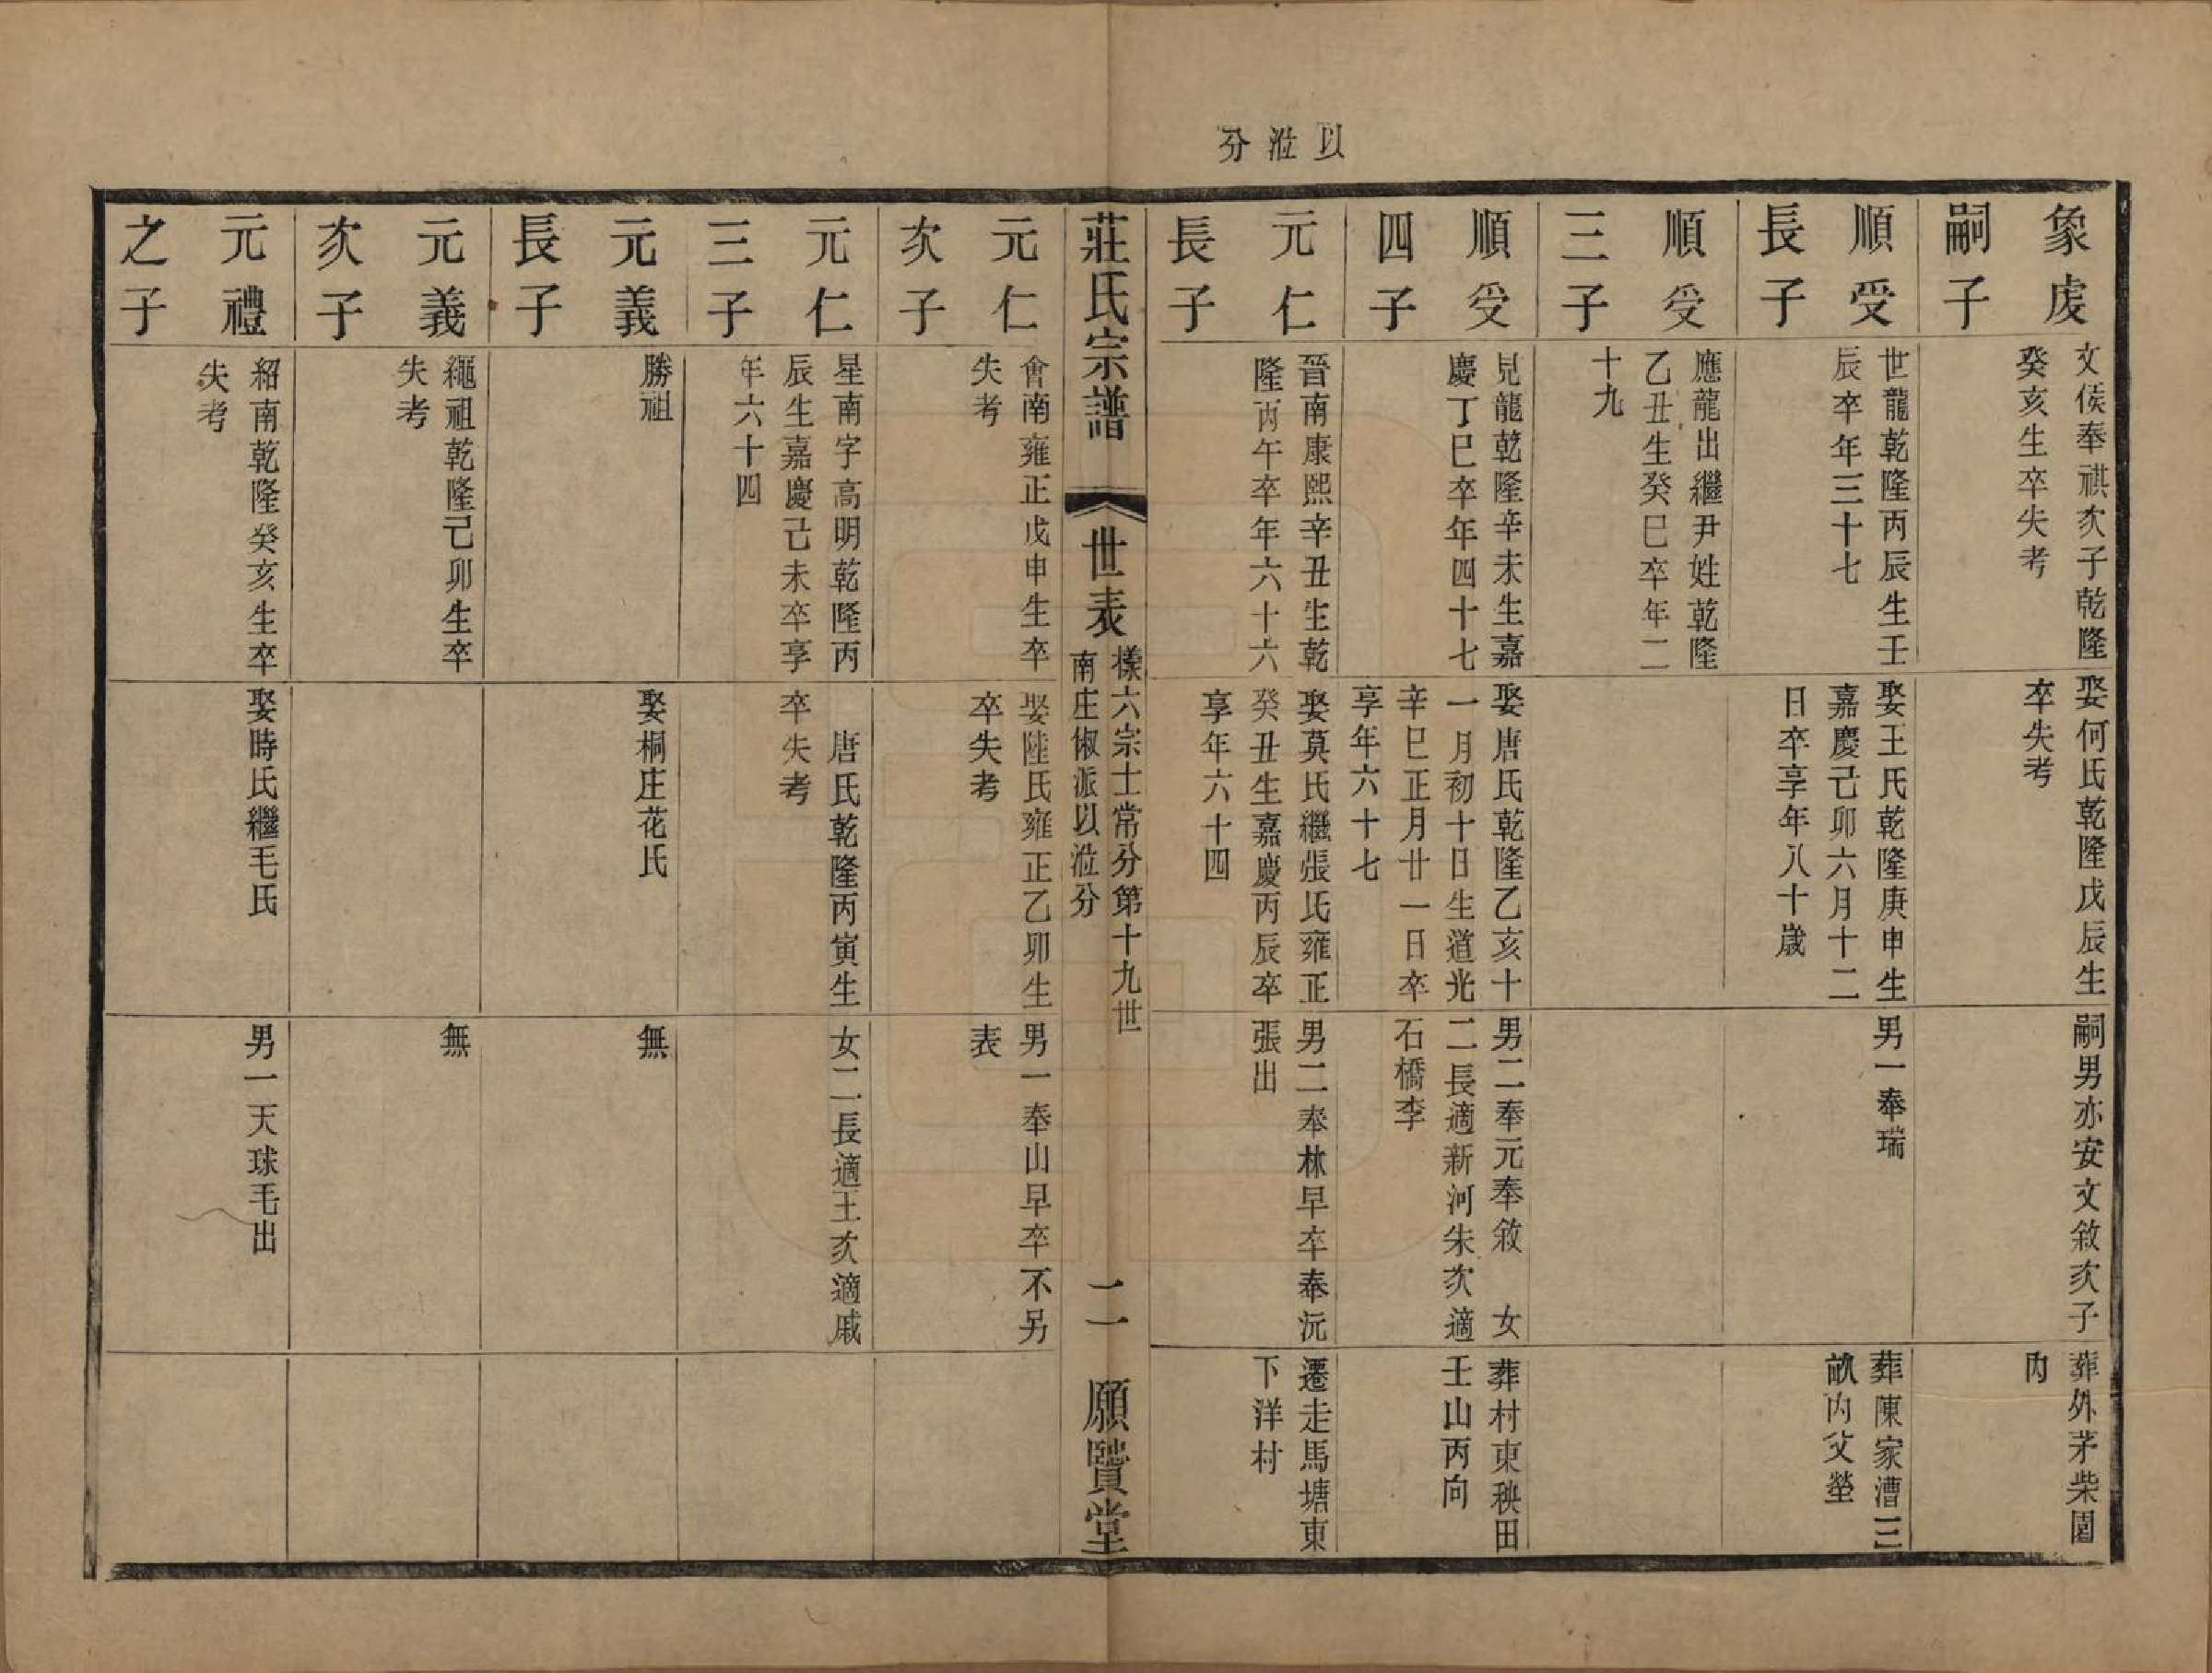 以涖分
象虔
嗣子
文侯奉祺次子乾隆
癸亥生卒失考
娶何氏乾隆戊辰生
卒失考
嗣男亦安文敘次子
葬外茅柴園
內
順受
長子
世龍乾隆丙辰生壬
辰卒年三十七
娶王氏乾隆庚申生
嘉慶己卯六月十二
日卒享年八十歲
男一奉瑞
葬陳家漕三
畝內父塋
順受
三子
應龍出繼尹姓乾隆
乙丑生癸巳卒年二
十九
順受
四子
見龍乾隆辛未生嘉
慶丁巳卒年四十七
娶唐氏乾隆乙亥十
一月初十日生道光
辛巳正月廿一日卒
享年六十七
男二奉元奉敘　女
二長適新河朱次適
石橋李
葬村東秧田
壬山丙向
元仁
長子
晉南康熙辛丑生乾
隆丙午卒年六十六
娶莫氏繼張氏雍正
癸丑生嘉慶丙辰卒
享年六十四
男二奉林早卒奉沅
張出
遷走馬塘東
下洋村
莊氏宗譜
世表
樣六宗士常分第十九世
南庄俶派以涖分
二
願賢堂
元仁
次子
會南雍正戊申生卒
失考
娶陸氏雍正乙卯生
卒失考
男一奉山早卒不另
表
元仁
三子
星南字高明乾隆丙
辰生嘉慶己未卒享
年六十四
唐氏乾隆丙寅生
卒失考
女二長適王次適戚
元義
長子
勝祖
娶桐庄花氏
無
元義
次子
繩祖乾隆己卯生卒
失考
無
元禮
之子
紹南乾隆癸亥生卒
失考
娶時氏繼毛氏
男一天球毛出